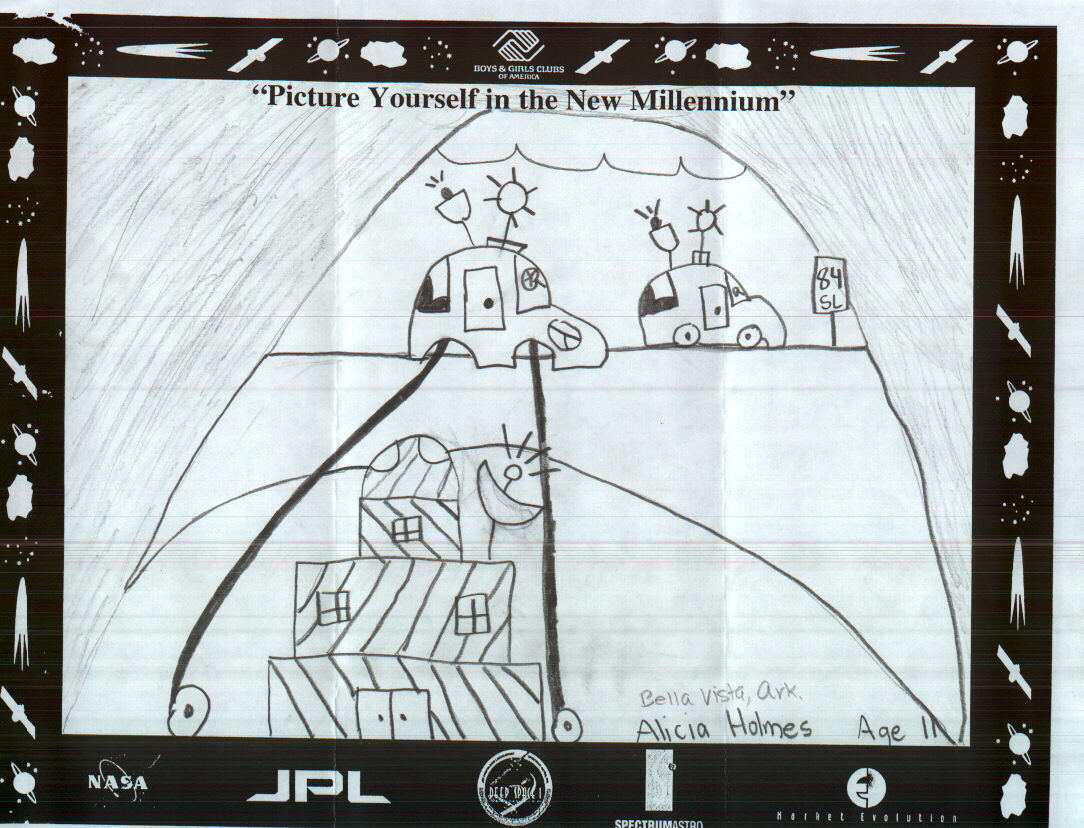 BOYS & GIRLS CLUBS
OF AMERICA
“Picture Yourself in the New Millennium”
84
SL
Bella Vista, Ark.
Alicia Holmes Age 11
NASA
JPL
DEEP SPACE 1
SPECTRUMASTRO
Market Evolution